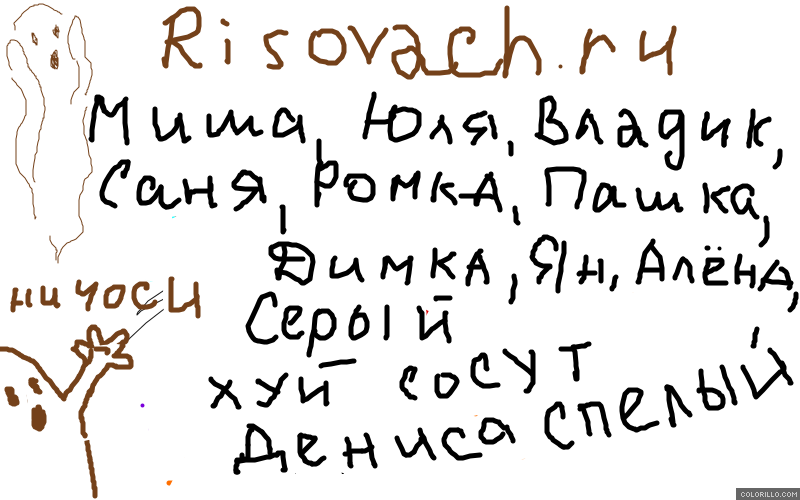 Risovach.ru
Миша, Юля, Владик,
Саня, Ромка, Пашка,
Димка, Ян, Алёна,
Серый
ничоси
хуй сосут
Дениса спелый
COLORILLO.COM